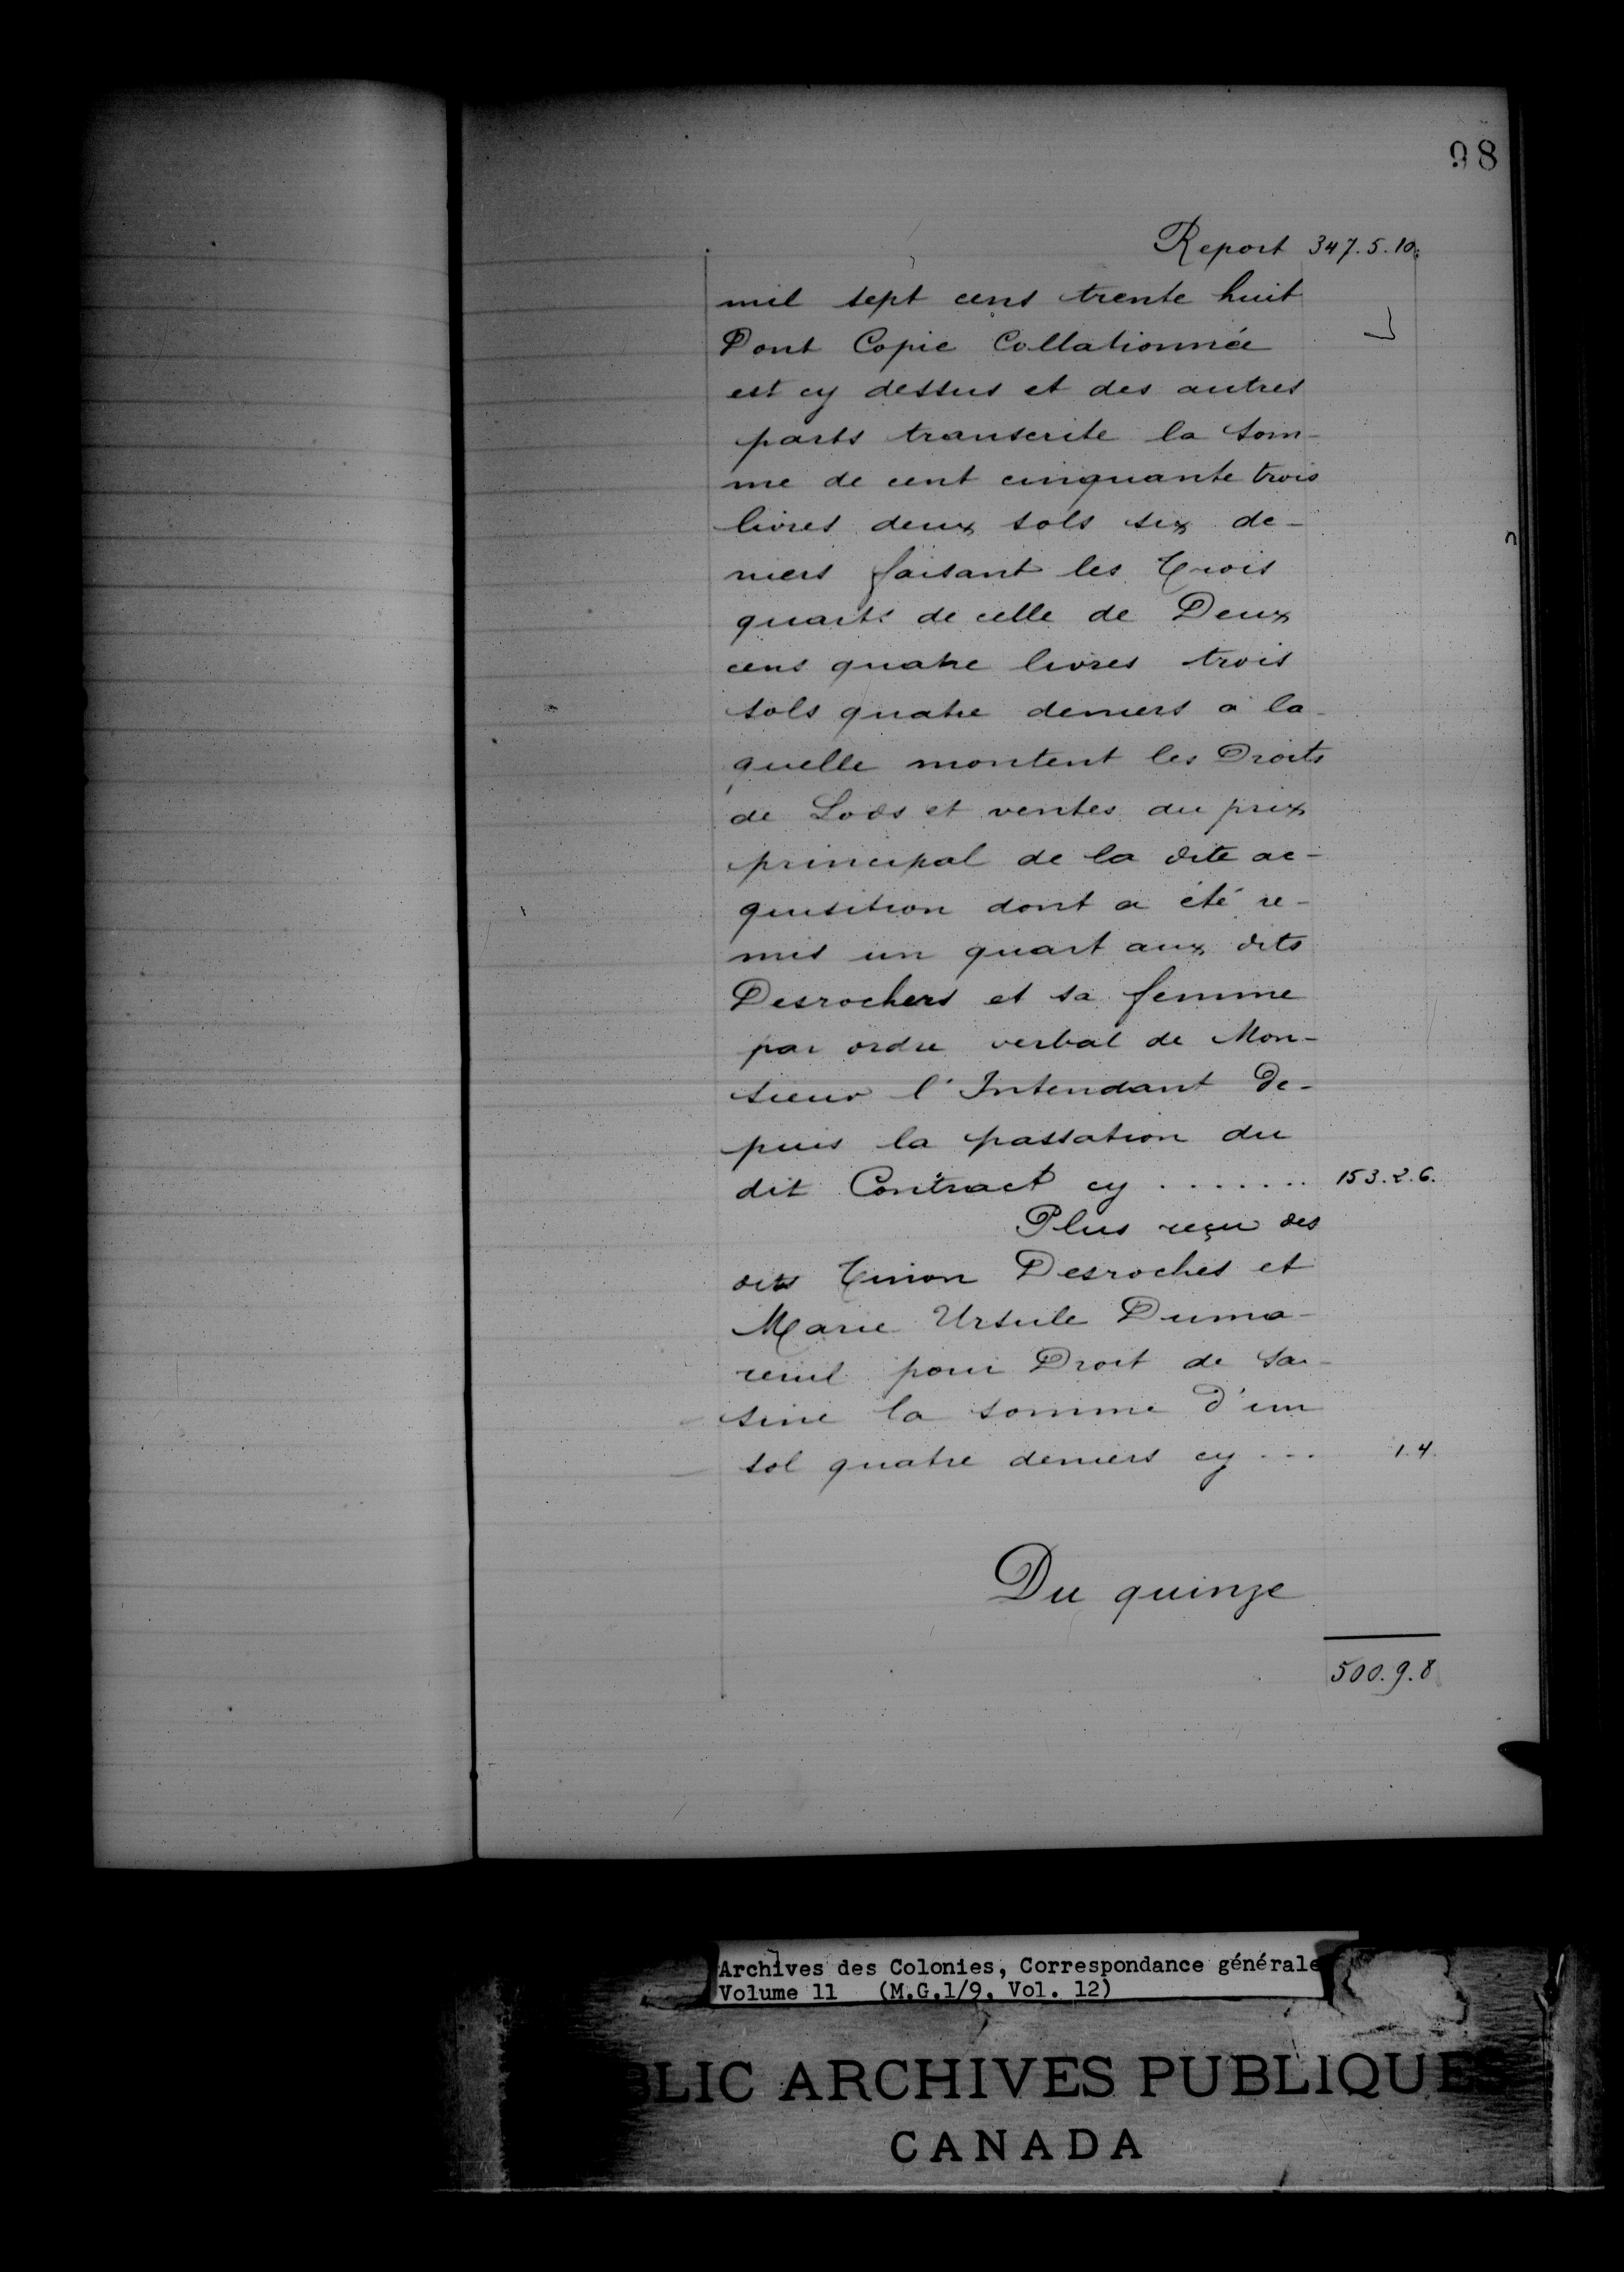 98
Report 347.5.10.
mil sept cens trente huit
Dont Copie Collationnée
est cy dessus et des autres
parts transcrite la som-
me de cent cinquante trois
livres deux sols six de-
niers faisant les Trois
quarts de celle de Deux
cens quatre livres trois
sols quatre deniers à la-
quelle montent les Droits
de Lods et ventes du prix
principal de la dite ac-
quisition dont a été re-
mis un quart aux dits
Desrochers et sa femme
par ordre verbal de Mon-
sieur l'Intendant De-
puis la passation du
dit Contract cy ....... 153.2.6.
Plus reçu des
dits Tinon Desroches et
Marie Ursule Duma-
reuil pour Droit de sai-
sine la somme d'un
sol quatre deniers cy ... 1.4.
Du quinze
500.9.8
Archives des Colonies, Correspondance générale
Volume 11 (M.G.1/9, Vol. 12)
BLIC ARCHIVES PUBLIQUES
CANADA